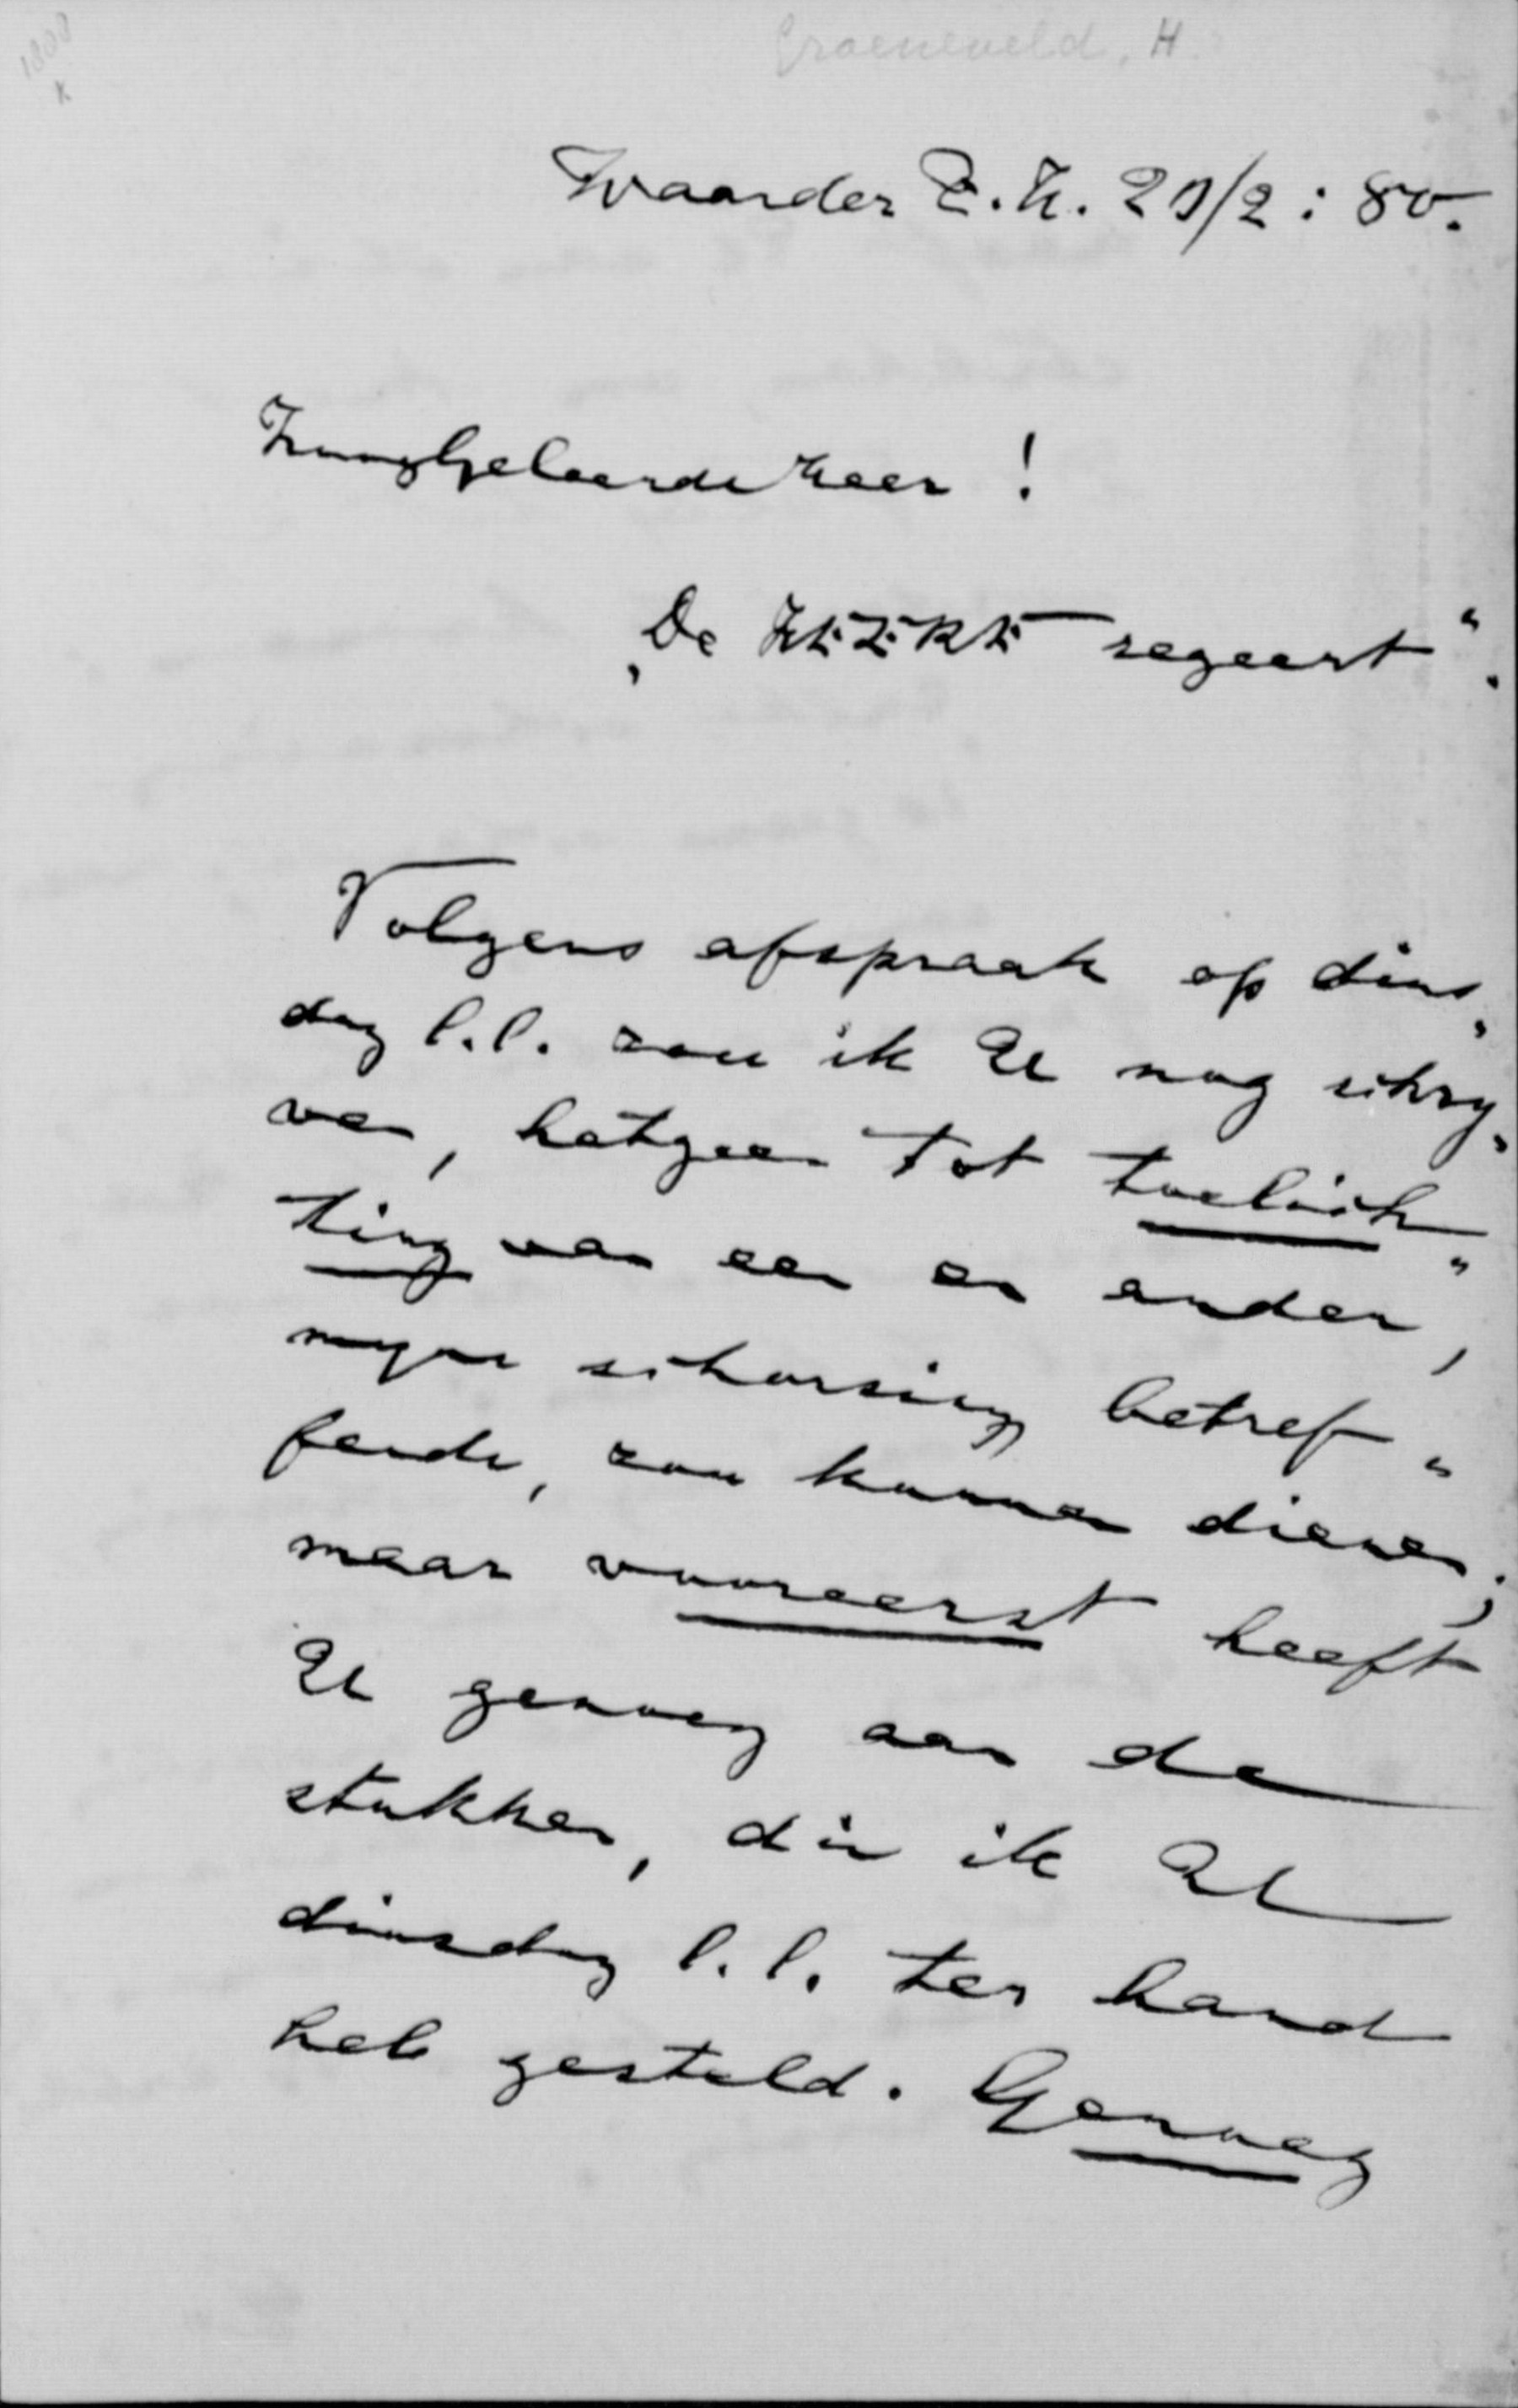 1880
K
Groeneveld, H.
Waarder Z.H. 20/2 : 80.
HoogGeleerde Heer !
„De HEERE regeert".
Volgens afspraak op dins„
dag l.l. zou ik U nog schry„
ven, hetgeen tot toelich„
ting van een en ander,
myne schorsing betref„
fende, zou kunnen dienen;
maar vooreerst heeft
U genoeg aan de
stukken, die ik U
dinsdag l.l. ter hand
heb gesteld. Genoeg